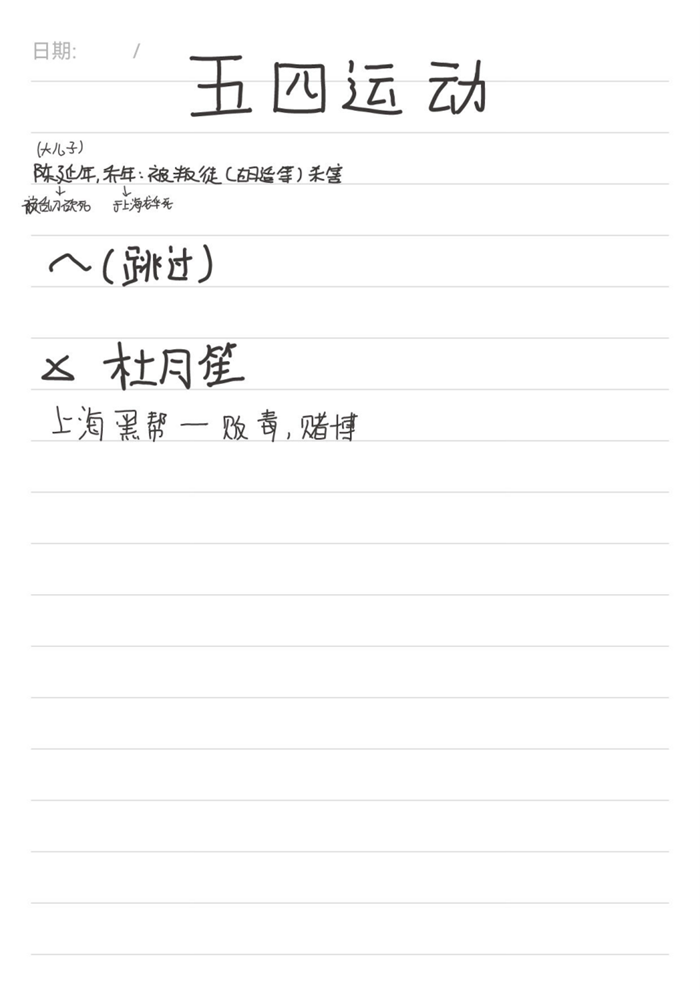 日期: /
五四运动
(大儿子)
陈延年,乔年:被叛徒(胡等)杀害
被乱刀砍死 于上海牢死
へ(跳过)
杜月笙
上海黑帮一败毒,赌博